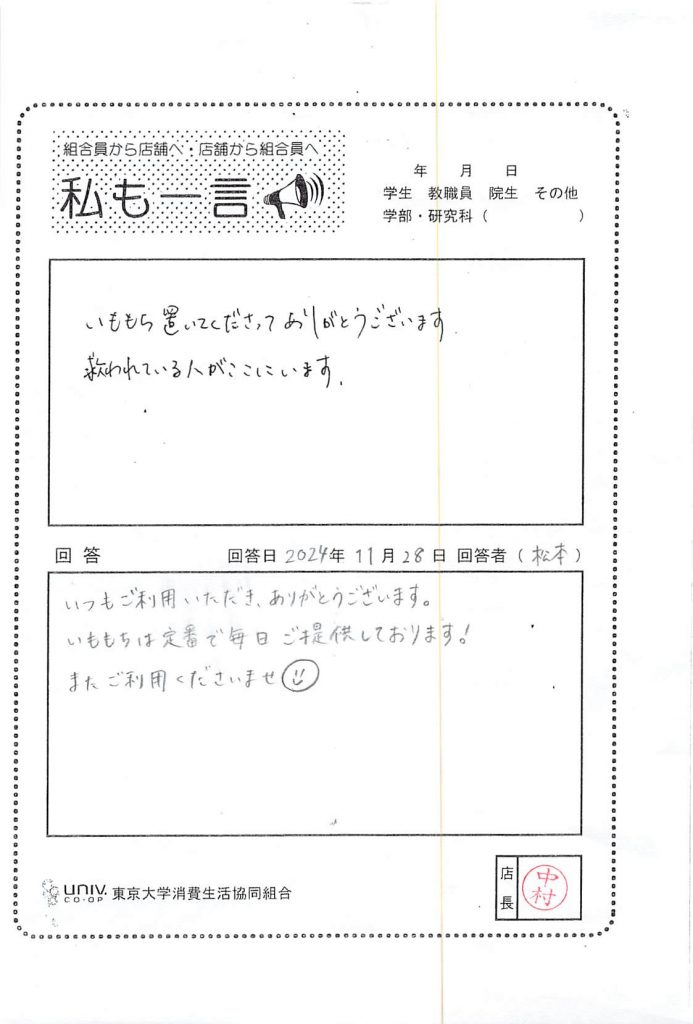 組合員から店舗へ・店舗から組合員へ
私も一言
年 月 日
学生 教職員 院生 その他
学部・研究科（ ）
いももち置いてくださってありがとうございます.
救われている人がここにいます.
回答 回答日 2024年 11月 28日 回答者（松本）
いつもご利用いただき、ありがとうございます。
いももちは定番で毎日ご提供しております!
またご利用くださいませ
UNIV. CO-OP 東京大学消費生活協同組合
店長 中村